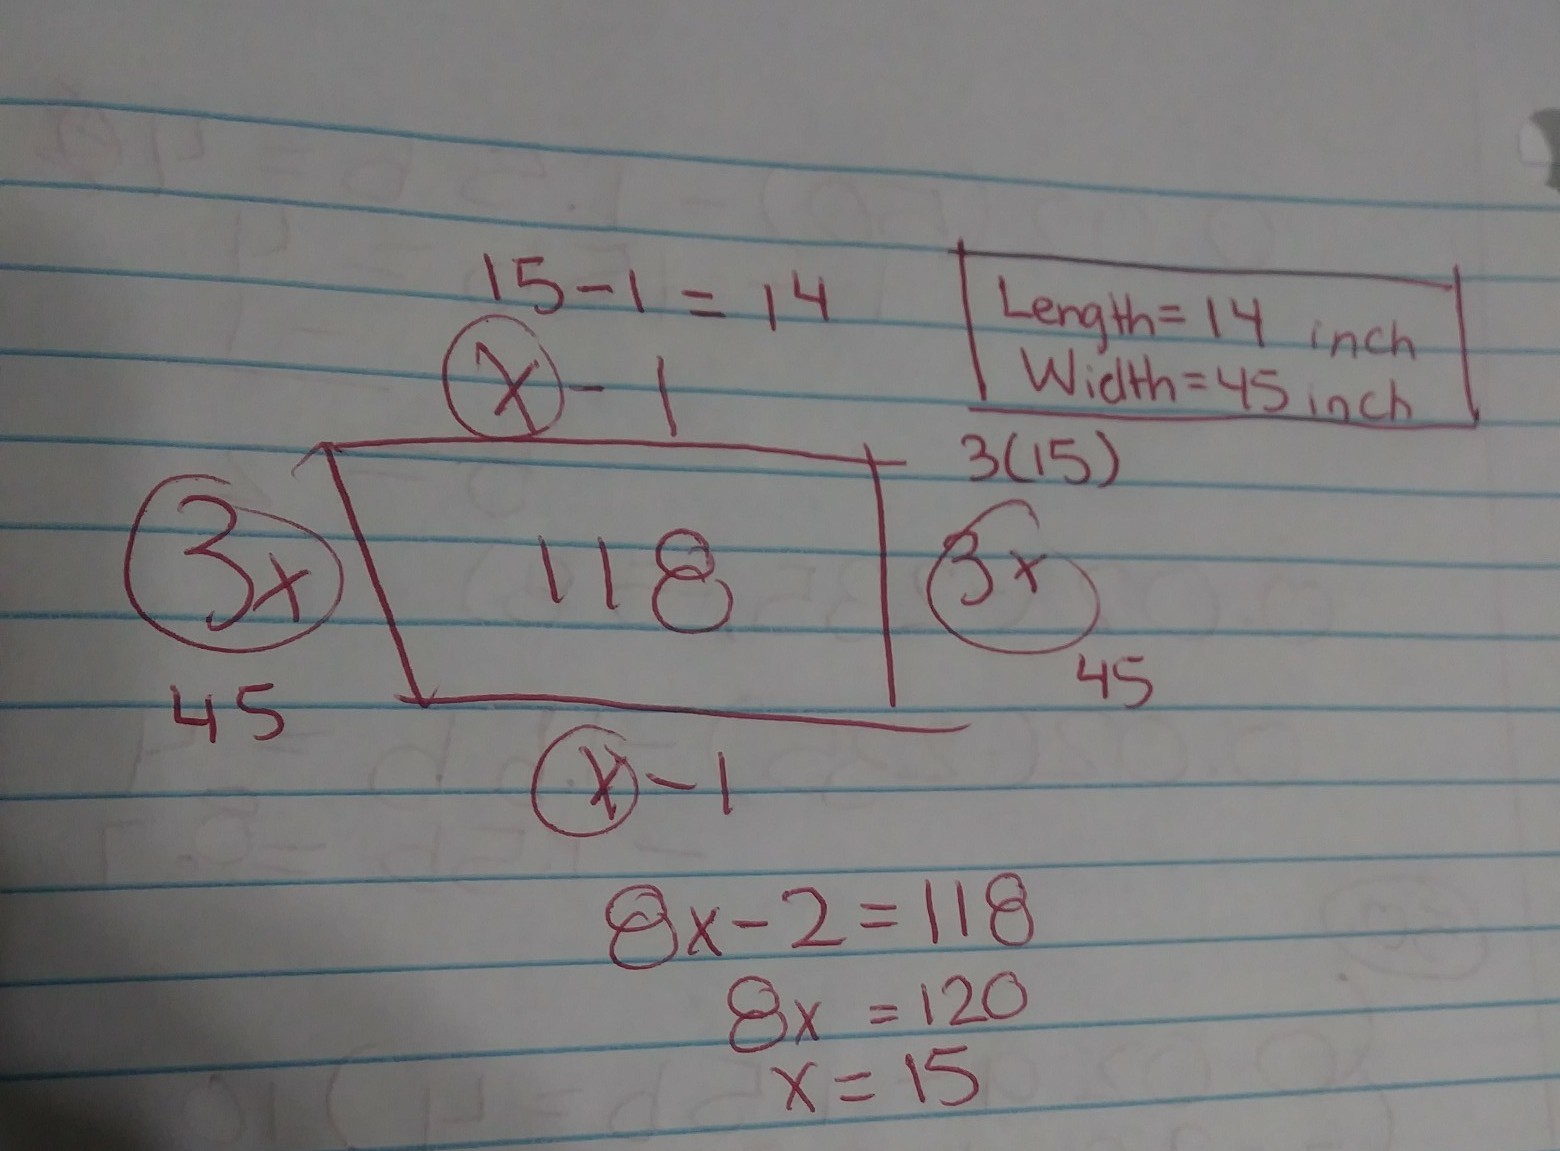 15-1 = 14
x - 1
Length = 14 inch
Width = 45 inch
3(15)
3x
118
3x
45
45
x - 1
8x - 2 = 118
8x = 120
x = 15